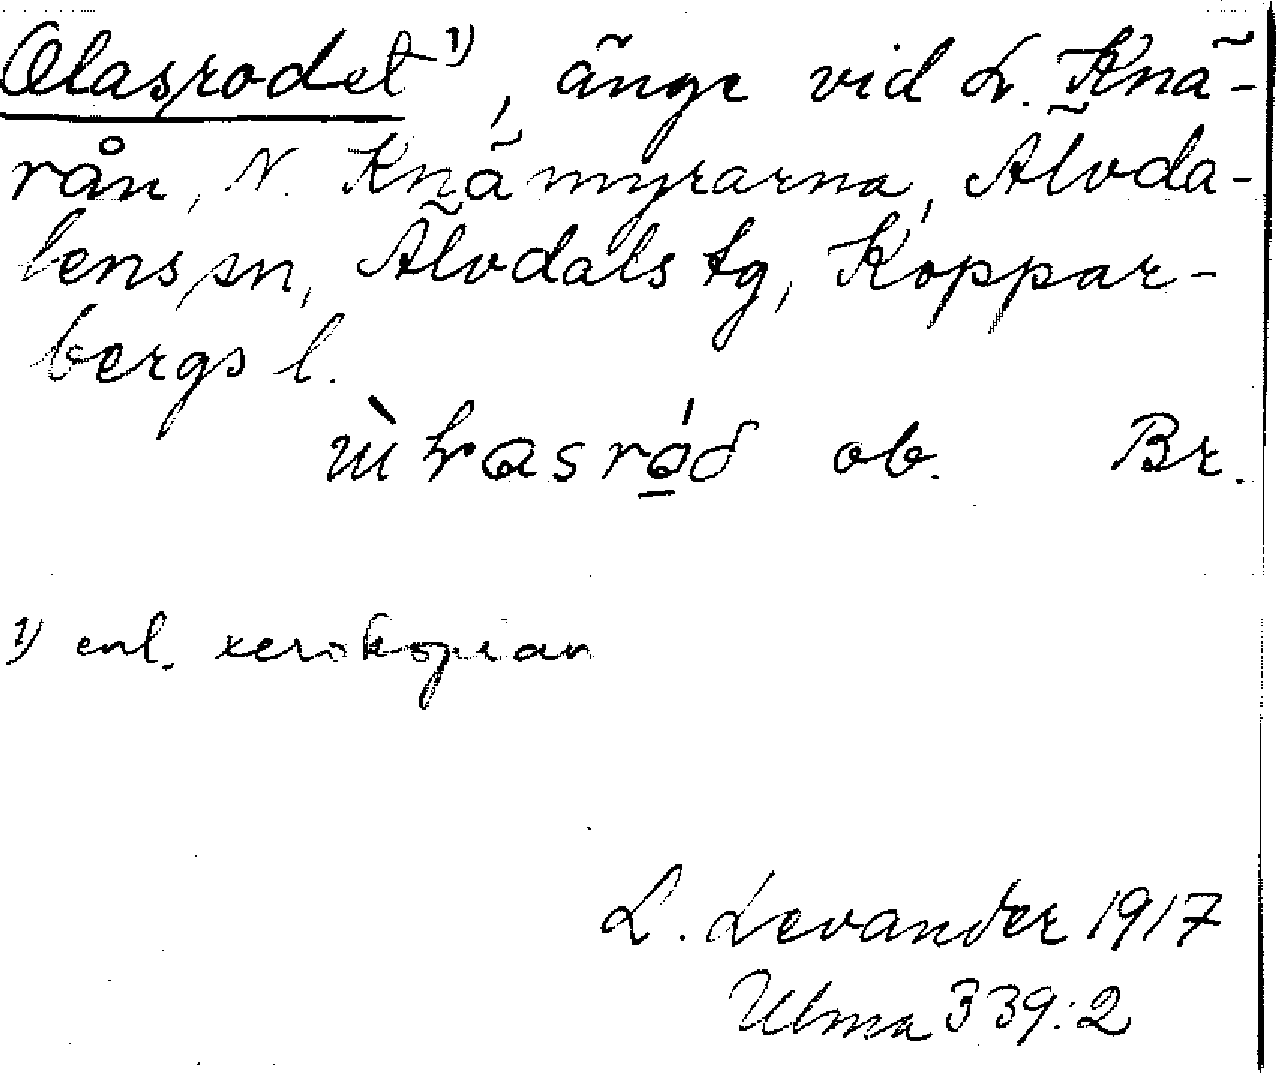 Olasrodet ¹⁾, änge vid L. Knä-
rån, N. Knämyrarna, Älvda-
lens sn, Älvdals tg, Koppar-
bergs l.
ob. Br.
¹⁾ enl. xerokopian
L. Levander 1917
Ulma 339:2